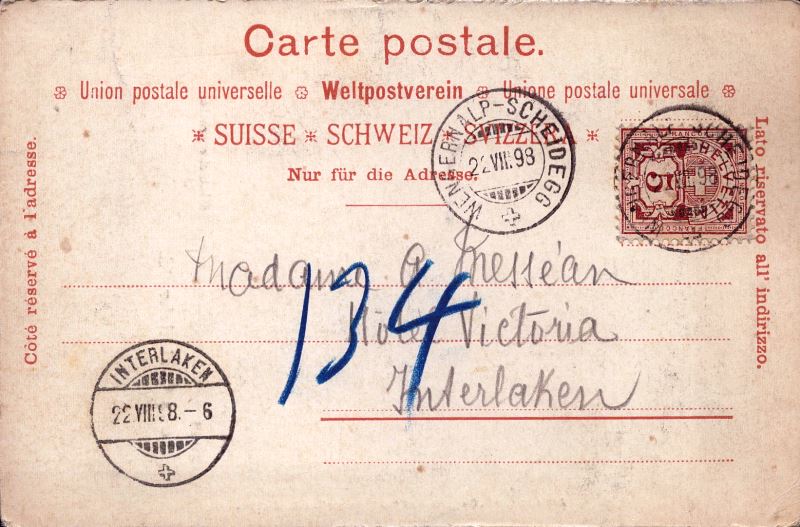 Carte postale.
Union postale universelle Weltpostverein Unione postale universale
SUISSE * SCHWEIZ * SVIZZERA
Nur für die Adresse.
Côté réservé à l'adresse.
Lato riservato all' indirizzo.
WENGERNALP-SCHEIDEGG
22.VII.98
FRANCO
5
HELVETIA
FRANCO
Madame A
134
Hôtel Victoria
Interlaken
INTERLAKEN
22.VIII.98.-6